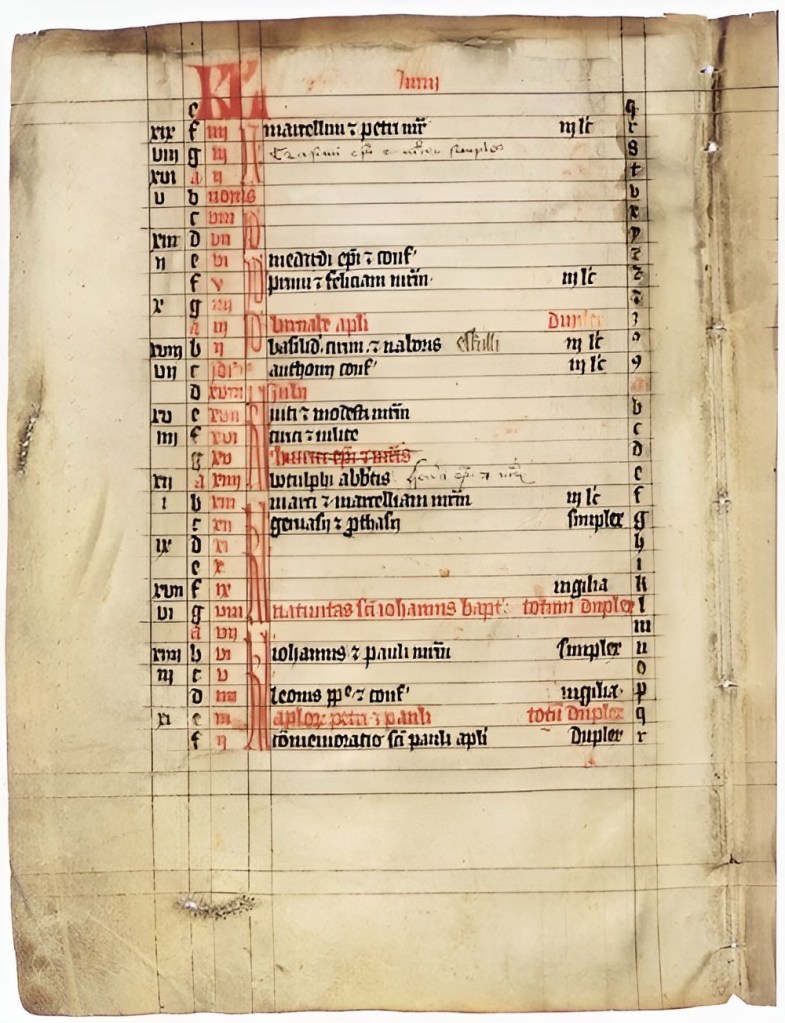 KL Junij
e q
xix f iiij marcellini ⁊ petri mr̄ iij lc̄
viij g iij Erasmi ep̄i ⁊ simplex s
xvi a ij t
v b nonis v
c viij x
xiii d vii y
ii e vi medardi ep̄i ⁊ conf' z
f v primi ⁊ feliciani mr̄m iij lc̄
x g iiij
a iij barnabe apl'i Duplex
xviij b ij basilid' cirini ⁊ naboris eskilli iij lc̄
vii c anthonij conf' iij lc̄ 9
d xviii Julij
xv e xvii viti ⁊ modesti mr̄m b
iiii f xvi cirici ⁊ iulite c
g xv ep̄i ⁊ d
xii a xiiii botulphi abb'tis ep̄i ⁊ e
i b xiii marci ⁊ marcelliani mr̄m iij lc̄ f
c xii geruasij ⁊ ꝓthasij simplex g
ix d xi h
e x i
xvii f ix uigilia k
vi g viii Natiuitas sc̄i iohannis bapt' totum duplex l
a vii m
xiiii b vi iohannis ⁊ pauli mr̄m simplex n
iii c v o
d iiii leonis pp̄e ⁊ conf' uigilia p
xi e iii aplorꝝ petri ⁊ pauli totū duplex q
f ii cōmemoratio sc̄i pauli apl'i Duplex r